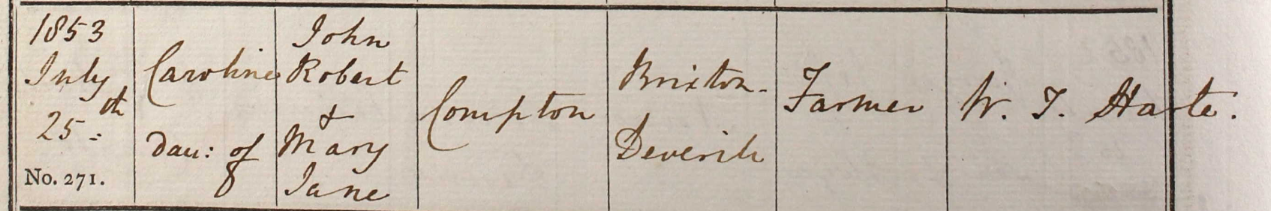 1853
July
25th
No. 271.
Caroline
Dau: of
John
Robert
&
Mary
Jane
Compton
Brixton-
Deverill
Farmer
W. T. Harte.